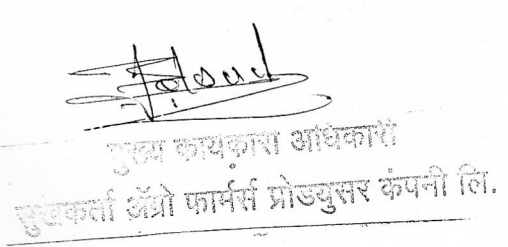 मुख्य कार्यकारी अधिकारी
सुखकर्ता ॲग्रो फार्मर्स प्रोड्युसर कंपनी लि.